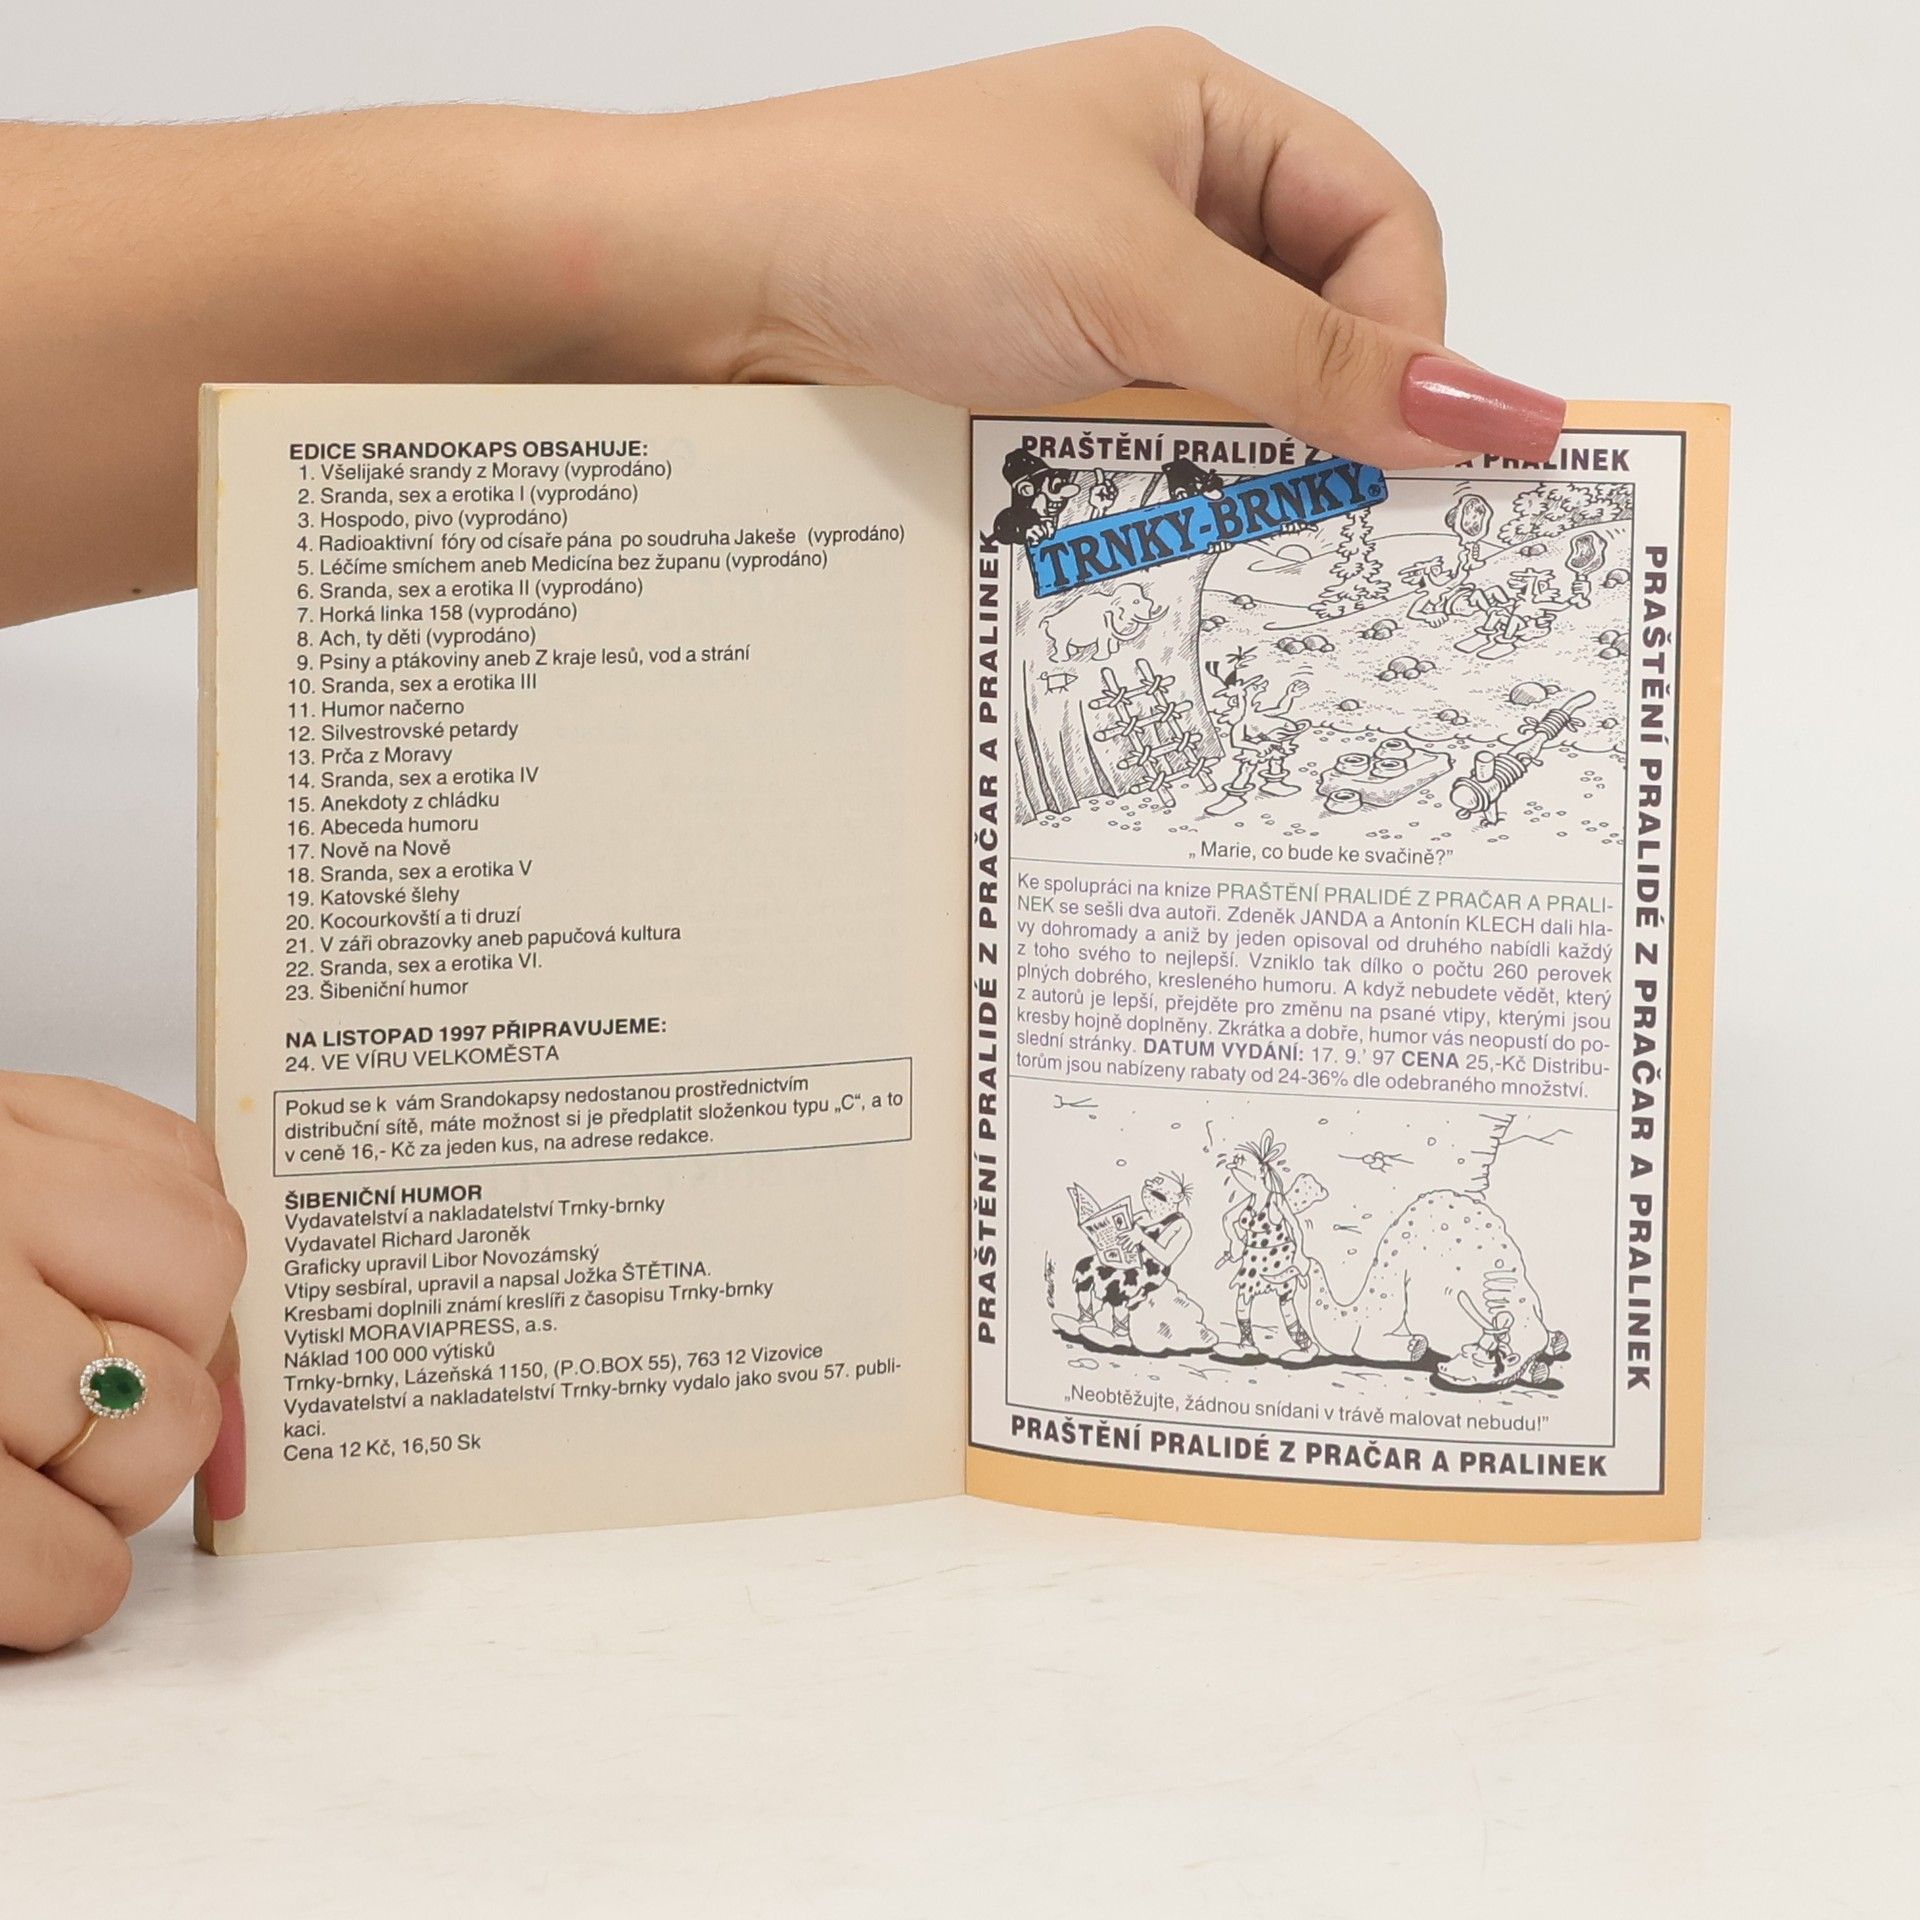 EDICE SRANDOKAPS OBSAHUJE:
1. Všelijaké srandy z Moravy (vyprodáno)
2. Sranda, sex a erotika I (vyprodáno)
3. Hospodo, pivo (vyprodáno)
4. Radioaktivní fóry od císaře pána po soudruha Jakeše (vyprodáno)
5. Léčíme smíchem aneb Medicína bez županu (vyprodáno)
6. Sranda, sex a erotika II (vyprodáno)
7. Horká linka 158 (vyprodáno)
8. Ach, ty děti (vyprodáno)
9. Psiny a ptákoviny aneb Z kraje lesů, vod a strání
10. Sranda, sex a erotika III
11. Humor načerno
12. Silvestrovské petardy
13. Prča z Moravy
14. Sranda, sex a erotika IV
15. Anekdoty z chládku
16. Abeceda humoru
17. Nově na Nově
18. Sranda, sex a erotika V
19. Katovské šlehy
20. Kocourkovští a ti druzí
21. V záři obrazovky aneb papučová kultura
22. Sranda, sex a erotika VI.
23. Šibeniční humor
NA LISTOPAD 1997 PŘIPRAVUJEME:
24. VE VÍRU VELKOMĚSTA
Pokud se k vám Srandokapsy nedostanou prostřednictvím
distribuční sítě, máte možnost si je předplatit složenkou typu „C“, a to
v ceně 16,- Kč za jeden kus, na adrese redakce.
ŠIBENIČNÍ HUMOR
Vydavatelství a nakladatelství Trnky-brnky
Vydavatel Richard Jaroněk
Graficky upravil Libor Novozámský
Vtipy sesbíral, upravil a napsal Jožka ŠTĚTINA.
Kresbami doplnili známí kreslíři z časopisu Trnky-brnky
Vytiskl MORAVIAPRESS, a.s.
Náklad 100 000 výtisků
Trnky-brnky, Lázeňská 1150, (P.O.BOX 55), 763 12 Vizovice
Vydavatelství a nakladatelství Trnky-brnky vydalo jako svou 57. publi-
kaci.
Cena 12 Kč, 16,50 Sk
PRAŠTĚNÍ PRALIDÉ Z A PRALINEK
TRNKY-BRNKY®
PRAŠTĚNÍ PRALIDÉ Z PRAČAR A PRALINEK
PRAŠTĚNÍ PRALIDÉ Z PRAČAR A PRALINEK
„Marie, co bude ke svačině?”
Ke spolupráci na knize PRAŠTĚNÍ PRALIDÉ Z PRAČAR A PRALI-
NEK se sešli dva autoři. Zdeněk JANDA a Antonín KLECH dali hla-
vy dohromady a aniž by jeden opisoval od druhého nabídli každý
z toho svého to nejlepší. Vzniklo tak dílko o počtu 260 perovek
plných dobrého, kresleného humoru. A když nebudete vědět, který
z autorů je lepší, přejděte pro změnu na psané vtipy, kterými jsou
kresby hojně doplněny. Zkrátka a dobře, humor vás neopustí do po-
slední stránky. DATUM VYDÁNÍ: 17. 9.’ 97 CENA 25,-Kč Distribu-
torům jsou nabízeny rabaty od 24-36% dle odebraného množství.
„Neobtěžujte, žádnou snídani v trávě malovat nebudu!”
PRAŠTĚNÍ PRALIDÉ Z PRAČAR A PRALINEK